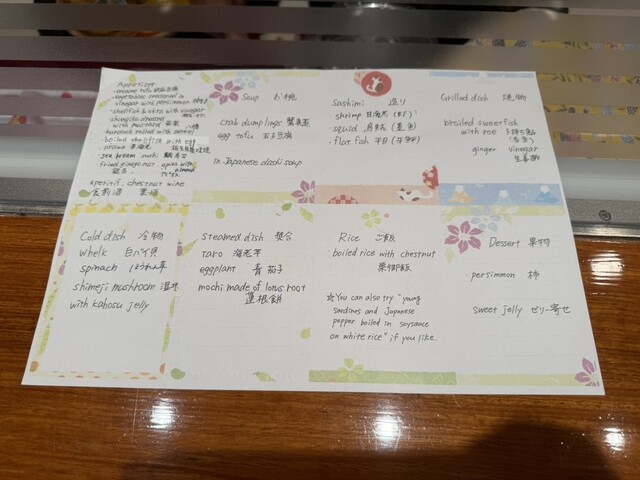 Appetizer
sesame tofu
vegetables seasoned in
vinegar with persimmon
shellfish & okra with vinegar
with mustard
boiled shellfish with egg
prawn
sea bream sushi
fried ginkgo nut,
almond
aperitif, chestnut wine
食前酒 栗酒
Soup お椀
crab dumplings 蟹真蒸
egg tofu 玉子豆腐
in Japanese dashi soup
Sashimi 造り
shrimp 甘海老
squid 烏賊
flat fish 平目
Grilled dish 焼物
broiled sweetfish
with roe 子持ち鮎
ginger vinegar
生姜酢
Cold dish 冷物
whelk 白バイ貝
spinach ほうれん草
shimeji mushroom
with kabosu jelly
Steamed dish 焚合
taro 海老芋
eggplant 青茄子
mochi made of lotus root
蓮根餅
Rice ご飯
boiled rice with chestnut
栗御飯
☆You can also try "young
sardines and Japanese
pepper boiled in soysauce
on white rice" if you like.
Dessert 果物
persimmon 柿
sweet jelly ゼリー寄せ